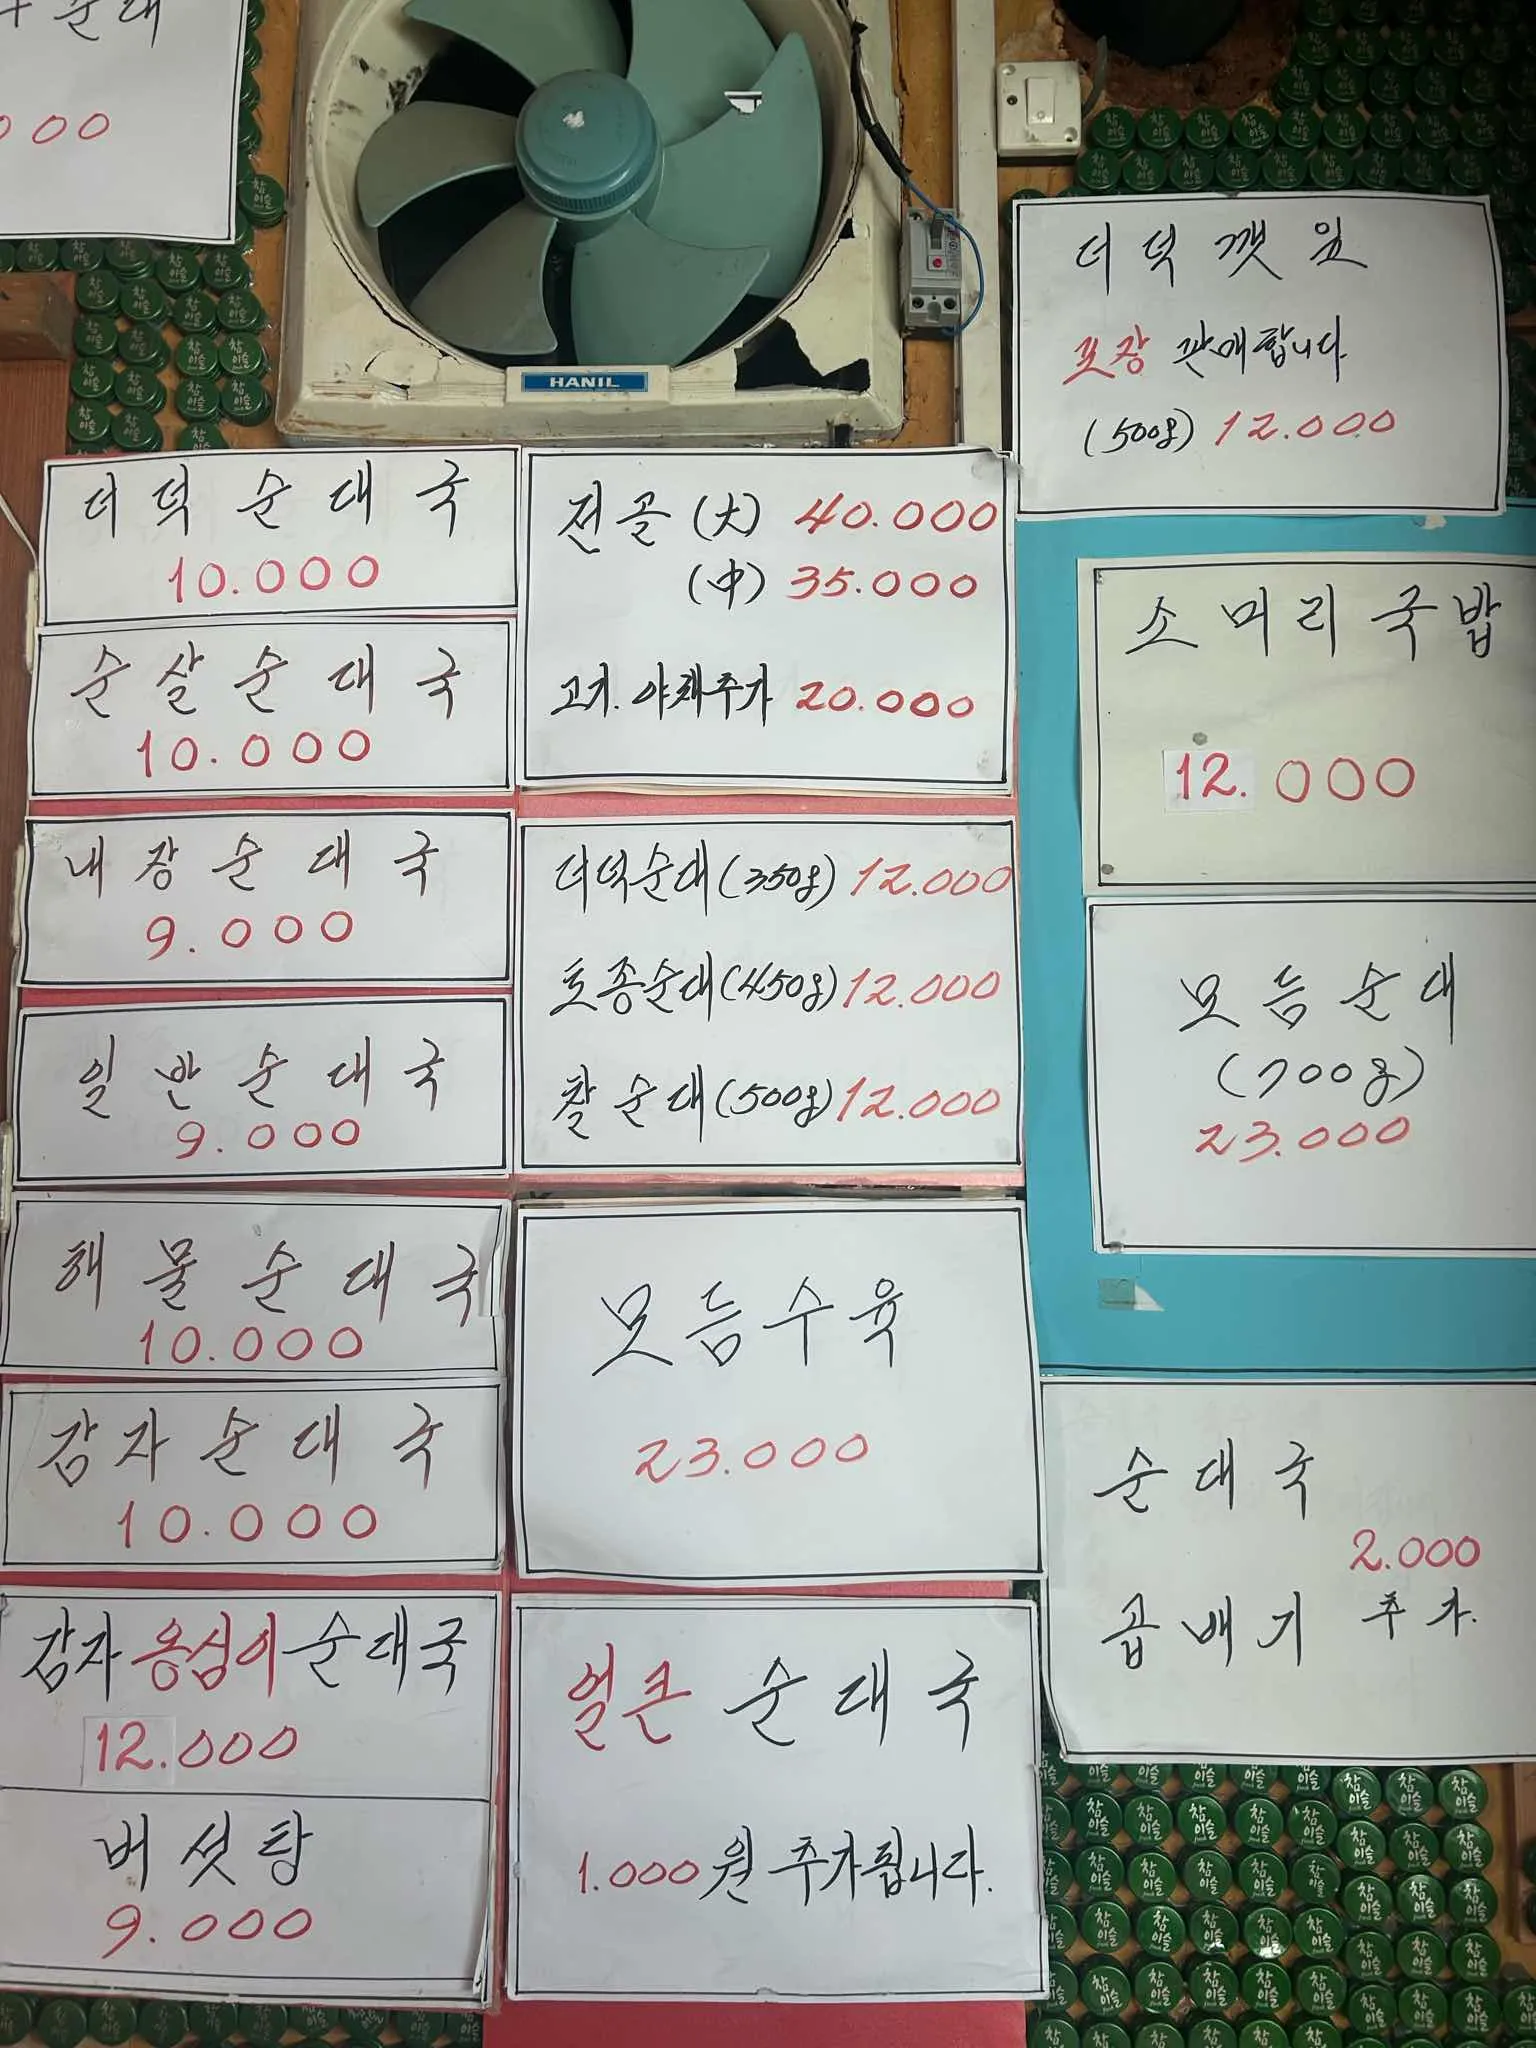 순대
000
HANIL
더덕깻잎
포장 판매합니다
(500g) 12.000
더덕순대국
10.000
순살순대국
10.000
내장순대국
9.000
일반순대국
9.000
해물순대국
10.000
감자순대국
10.000
감자옹심이순대국
12.000
버섯탕
9.000
전골(大) 40.000
(中) 35.000
고기.야채추가 20.000
더덕순대(350g) 12.000
토종순대(450g) 12.000
찰순대(500g) 12.000
모듬수육
23.000
얼큰 순대국
1.000원 추가됩니다.
소머리국밥
12.000
모듬순대
(700g)
23.000
순대국
2.000
곱배기 추가.
참이슬